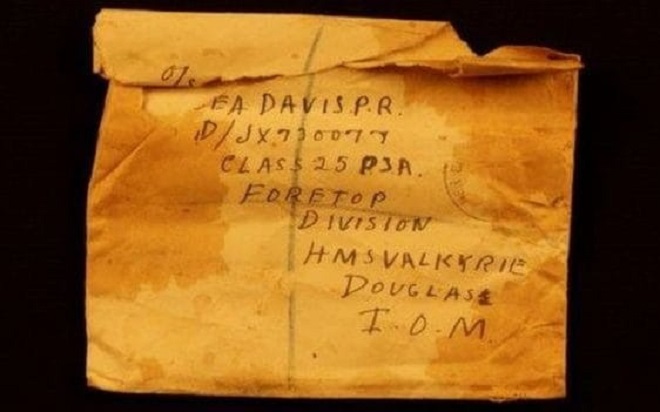 O/s
EA DAVIS.P.R.
D/JX730077
CLASS 25 P3A.
FORETOP
DIVISION
HMS VALKYRIE
DOUGLASE
I.O.M.